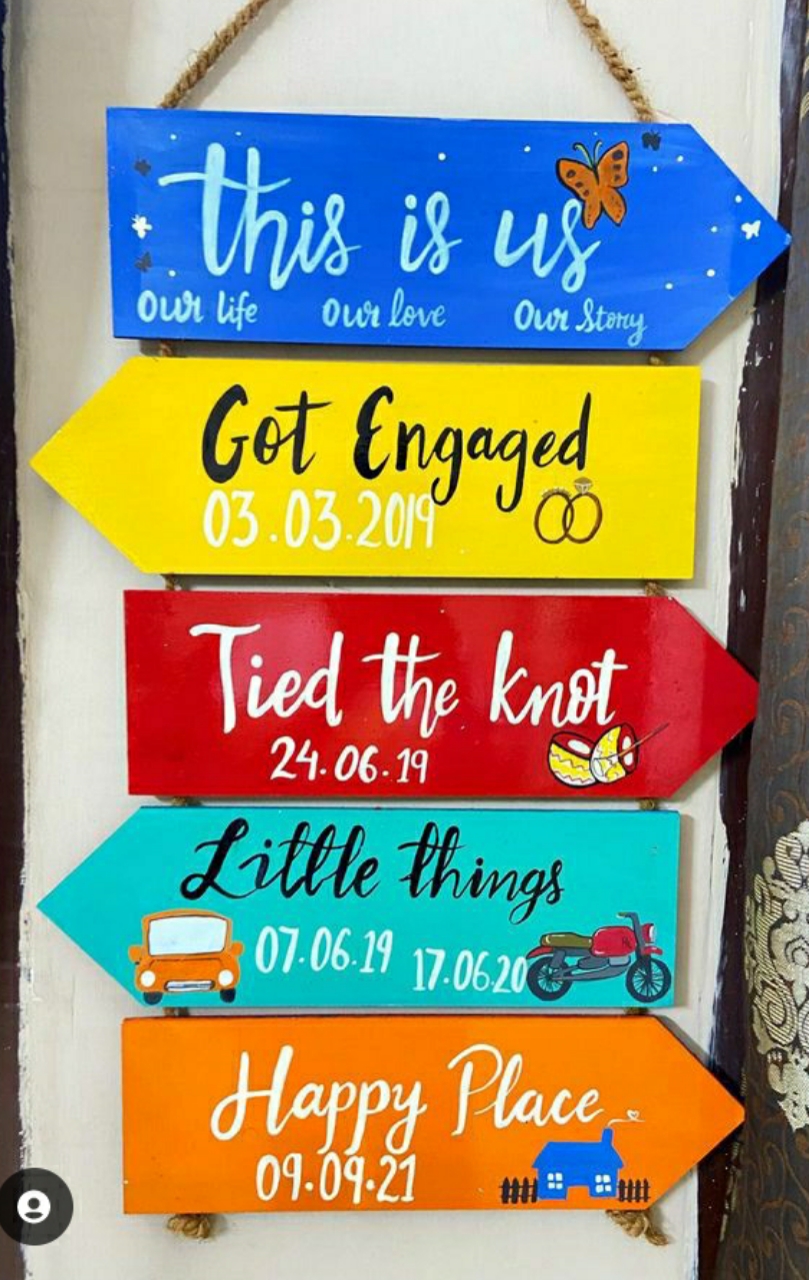 this is us
our life our love our Story
Got Engaged
03.03.2019
Tied the knot
24.06.19
Little things
07.06.19 17.06.20
Happy Place
09.09.21